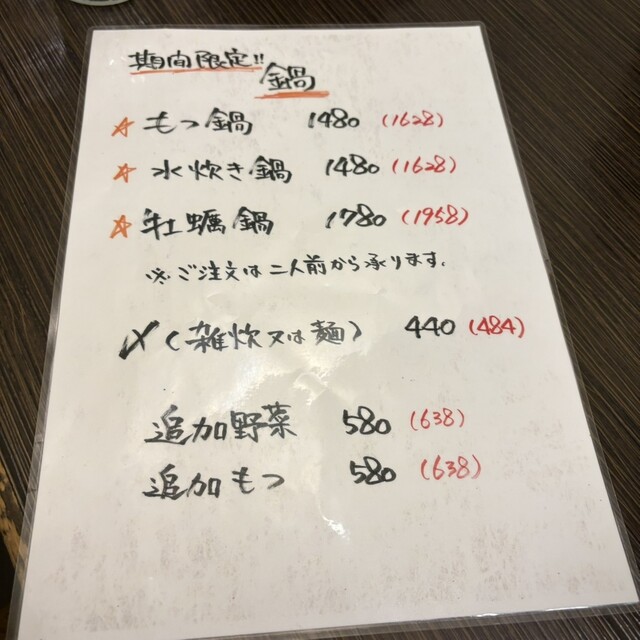 期間限定!! 鍋
☆ もつ鍋 1480 (1628)
☆ 水炊き鍋 1480 (1628)
☆ 牡蠣鍋 1780 (1958)
※ ご注文は二人前から承ります。
〆(雑炊又は麺) 440 (484)
追加野菜 580 (638)
追加もつ 580 (638)